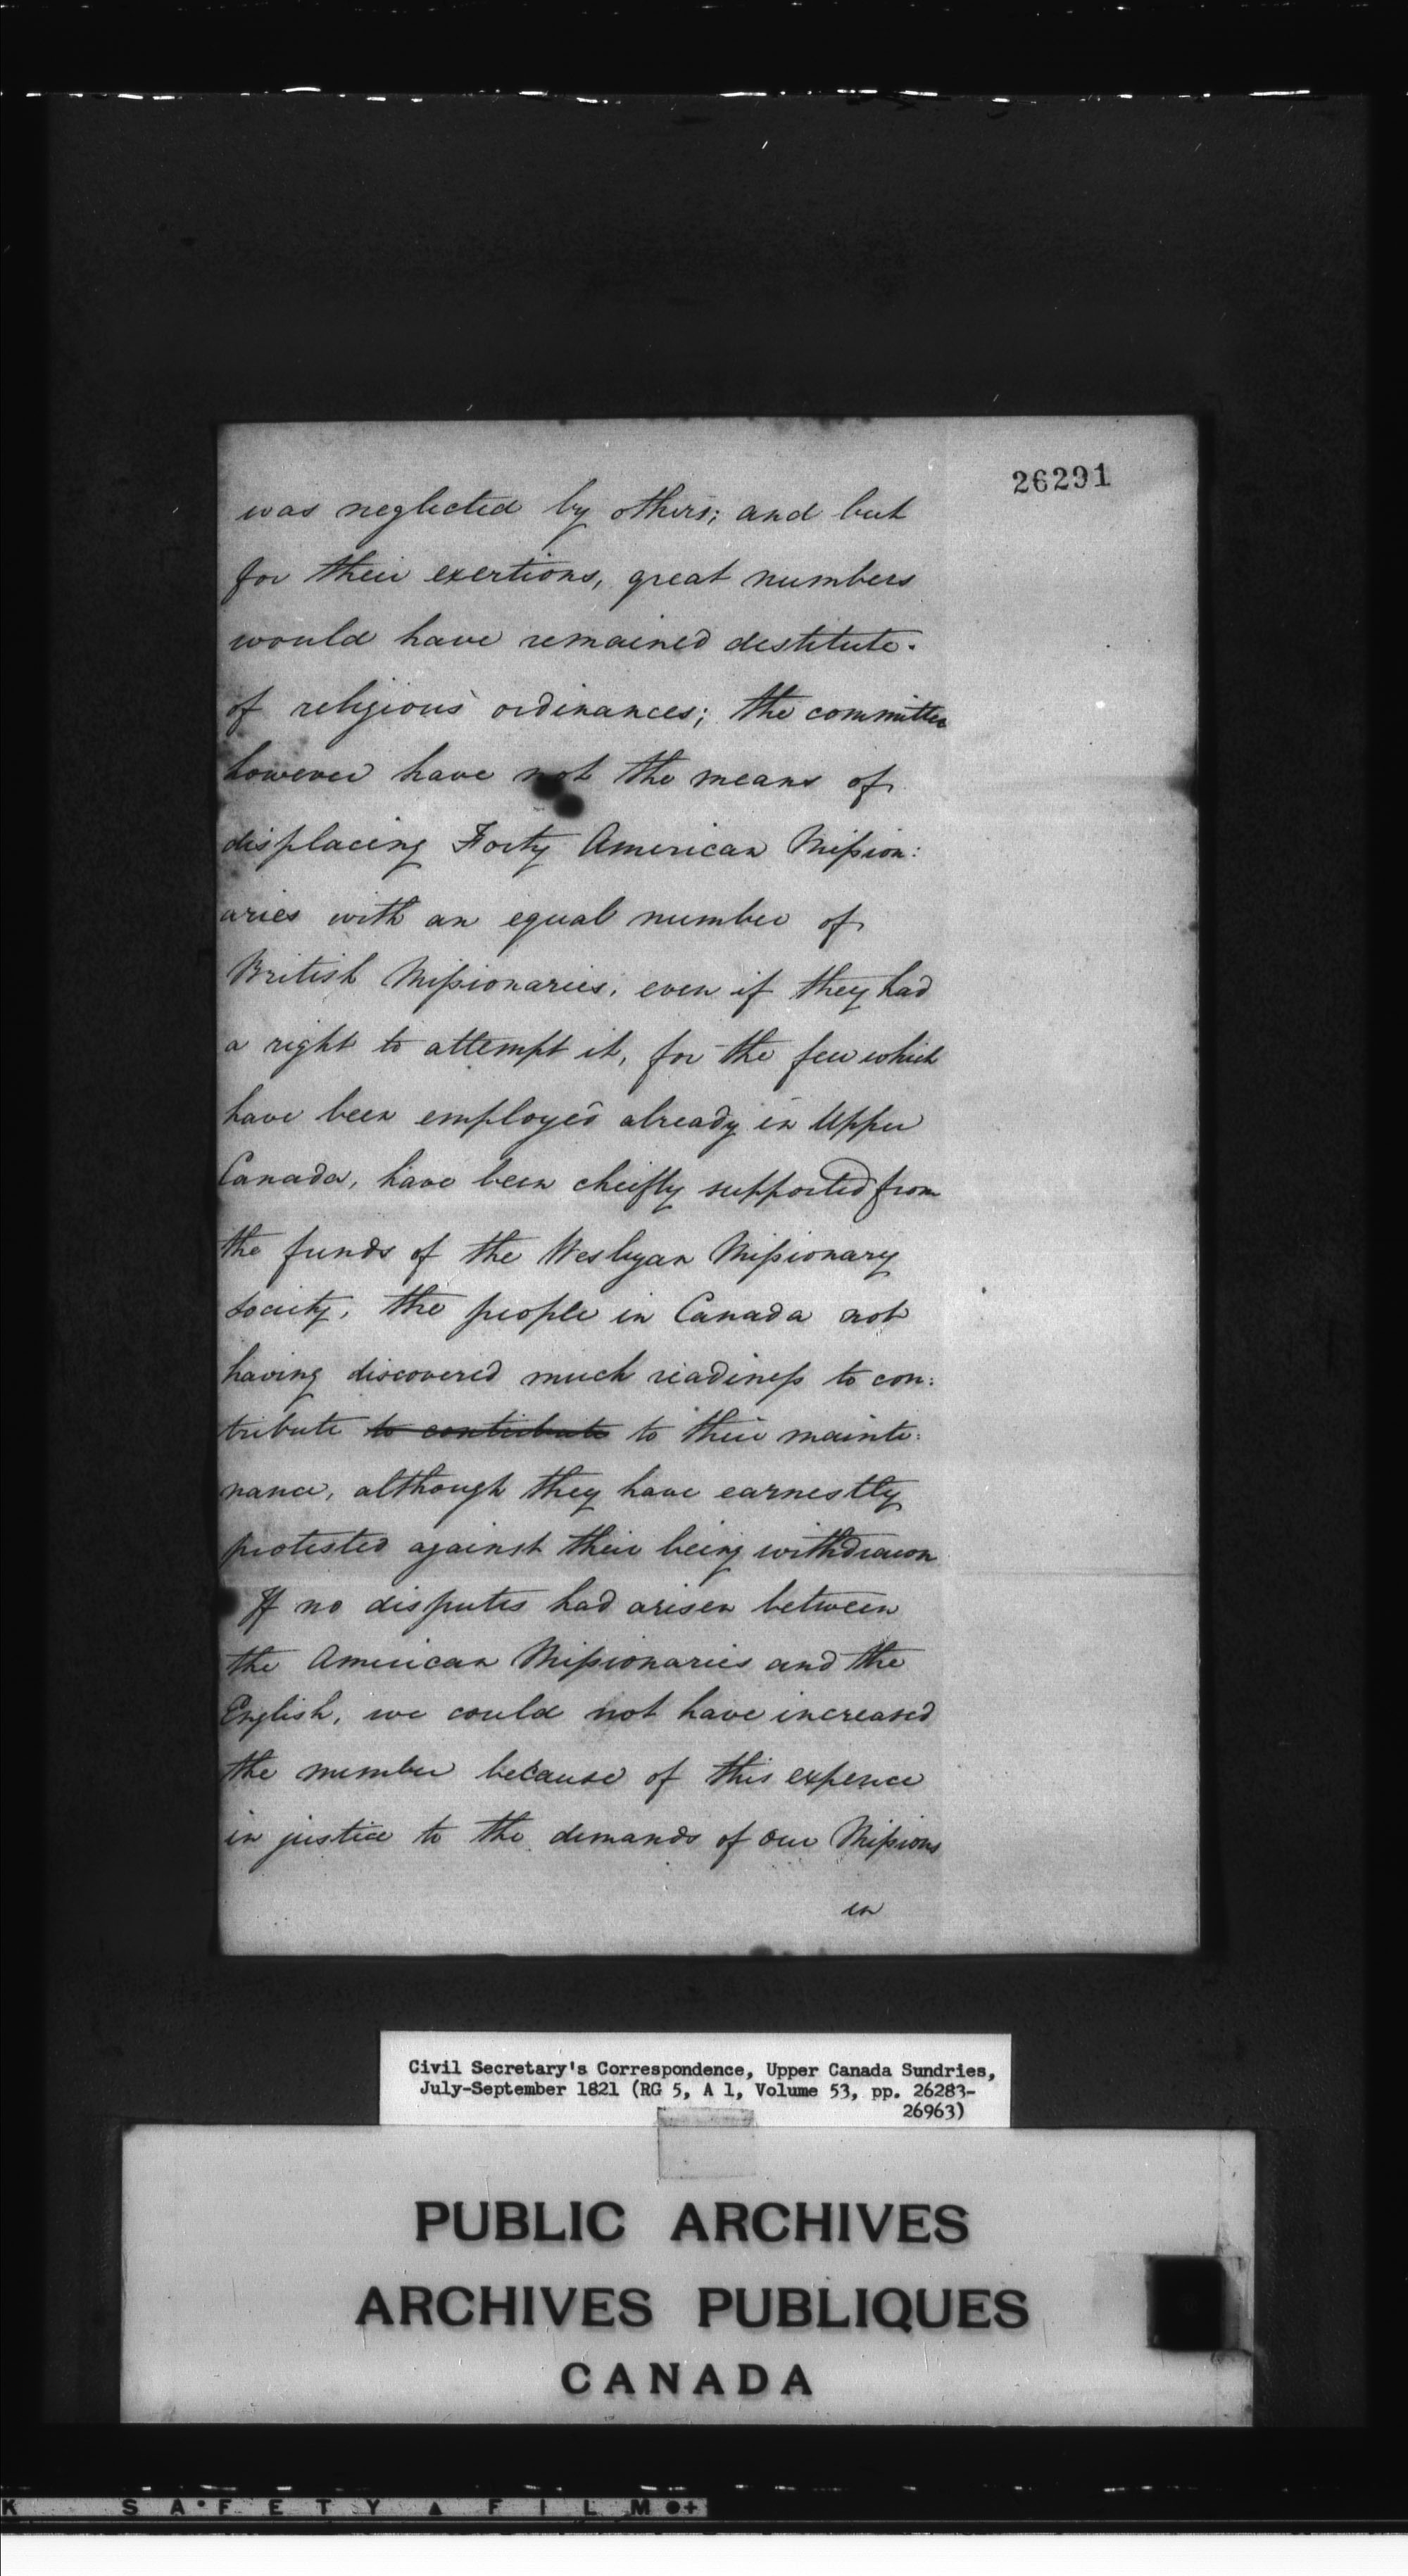 26291
was neglected by others; and but
for their exertions, great numbers
would have remained destitute.
of religious ordinances; the committee
however have not the means of
displacing Forty American Mission:
aries with an equal number of
British Missionaries, even if they had
a right to attempt it, for the few which
have been employed already in Upper
Canada, have been cheifly supported from
the funds of the Wesleyan Missionary
Society, the people in Canada not
having discovered much readiness to con:
tribute to contribute to their mainte:
nance, although they have earnestly
protested against their being withdrawn
If no disputes had arisen between
the American Missionaries and the
English, we could not have increased
the number because of this expence
in justice to the demands of our Missions
in
Civil Secretary's Correspondence, Upper Canada Sundries,
July-September 1821 (RG 5, A 1, Volume 53, pp. 26283-
26963)
PUBLIC ARCHIVES
ARCHIVES PUBLIQUES
CANADA
K SAFETY ▲ FILM ●+